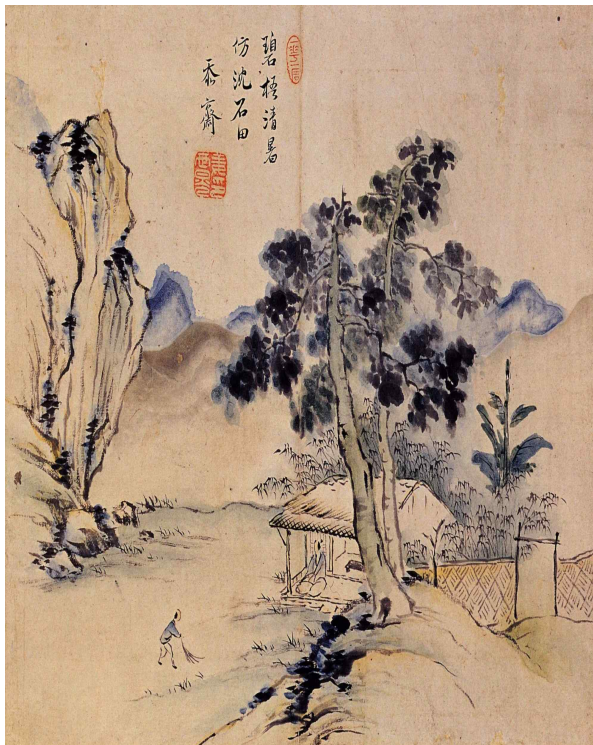 碧梧清暑
仿沈石田
忝齋